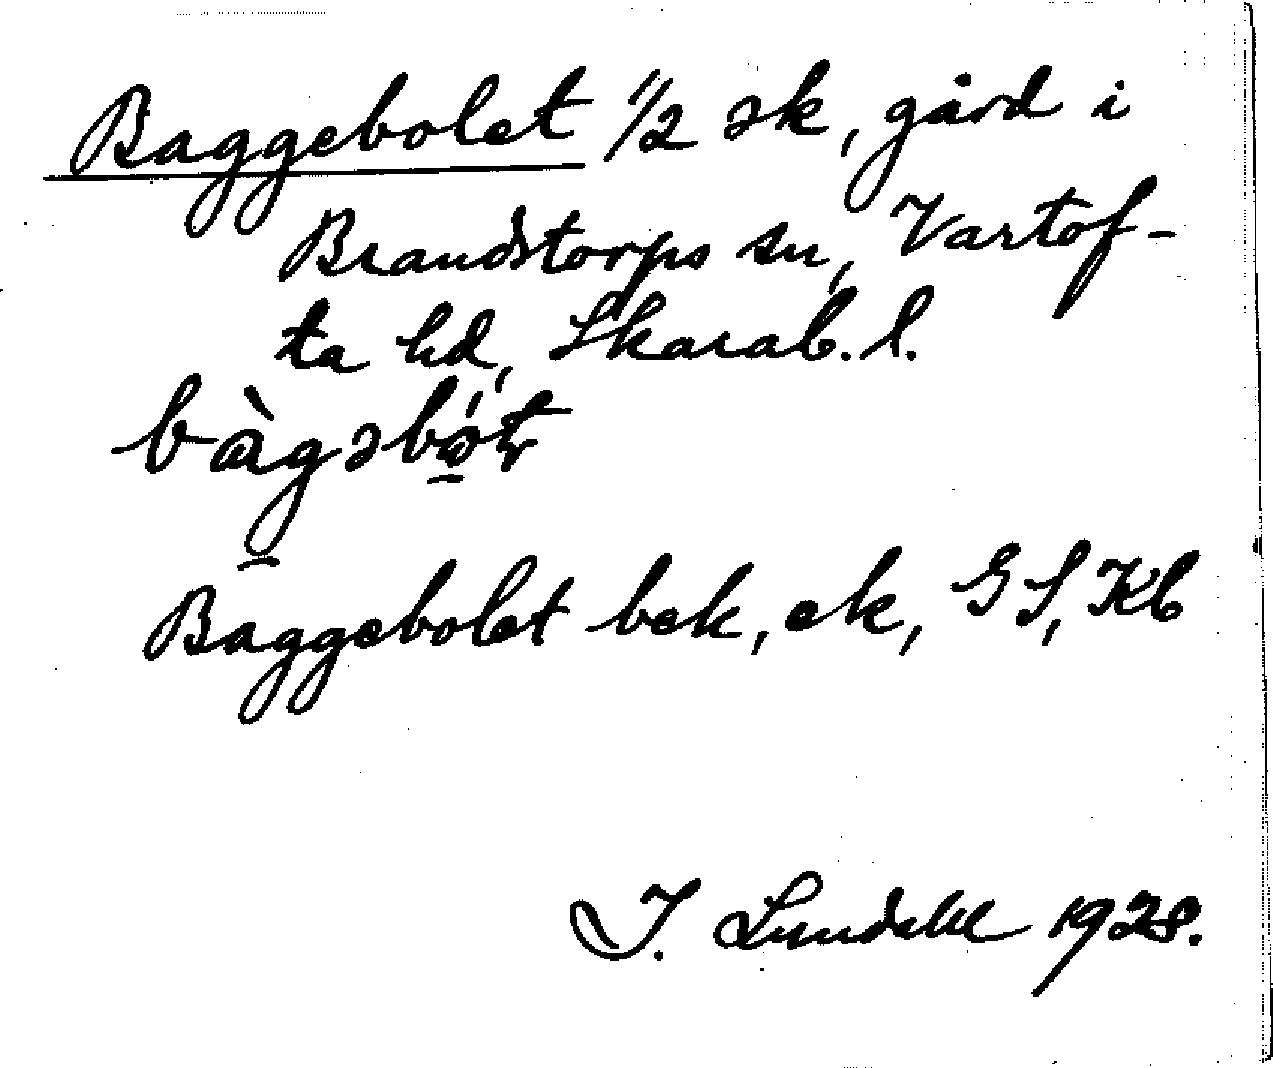 Baggebolet 1/2 sk, gård i
Brandstorps sn, Vartof-
ta hd, Skarab. l.
bàgəbó̱t
Baggebolet bek, ek, GS, Kb
I. Lundahl 1928.